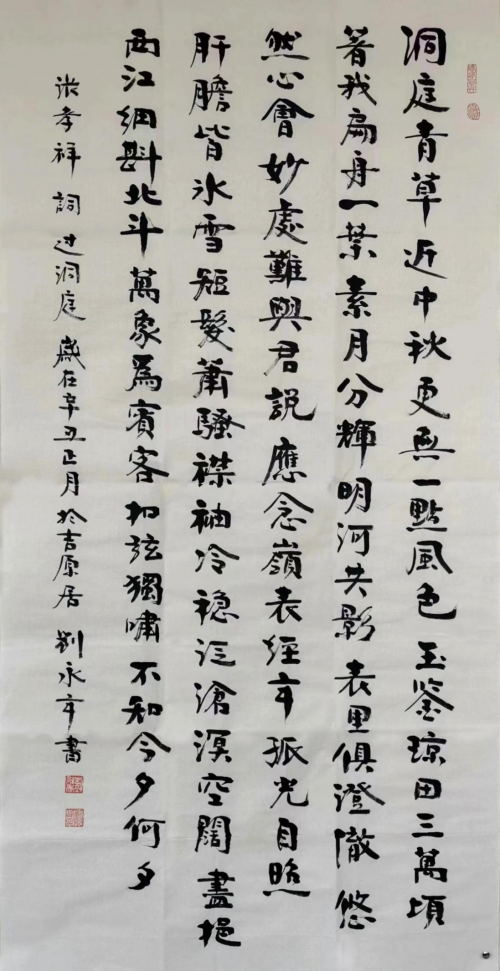 洞庭青草近中秋更無一點風色玉鉴琼田三萬頃
著我扁舟一葉素月分輝明河共影表里俱澄澈悠
然心會妙處難與君説應念嶺表經年孤光自照
肝膽皆氷雪短髮蕭騷襟袖冷穏泛滄溟空闊盡挹
西江細斟北斗萬象為賓客扣弦獨嘯不知今夕何夕
張孝祥詞过洞庭歲在辛丑正月於吉原居劉永年書